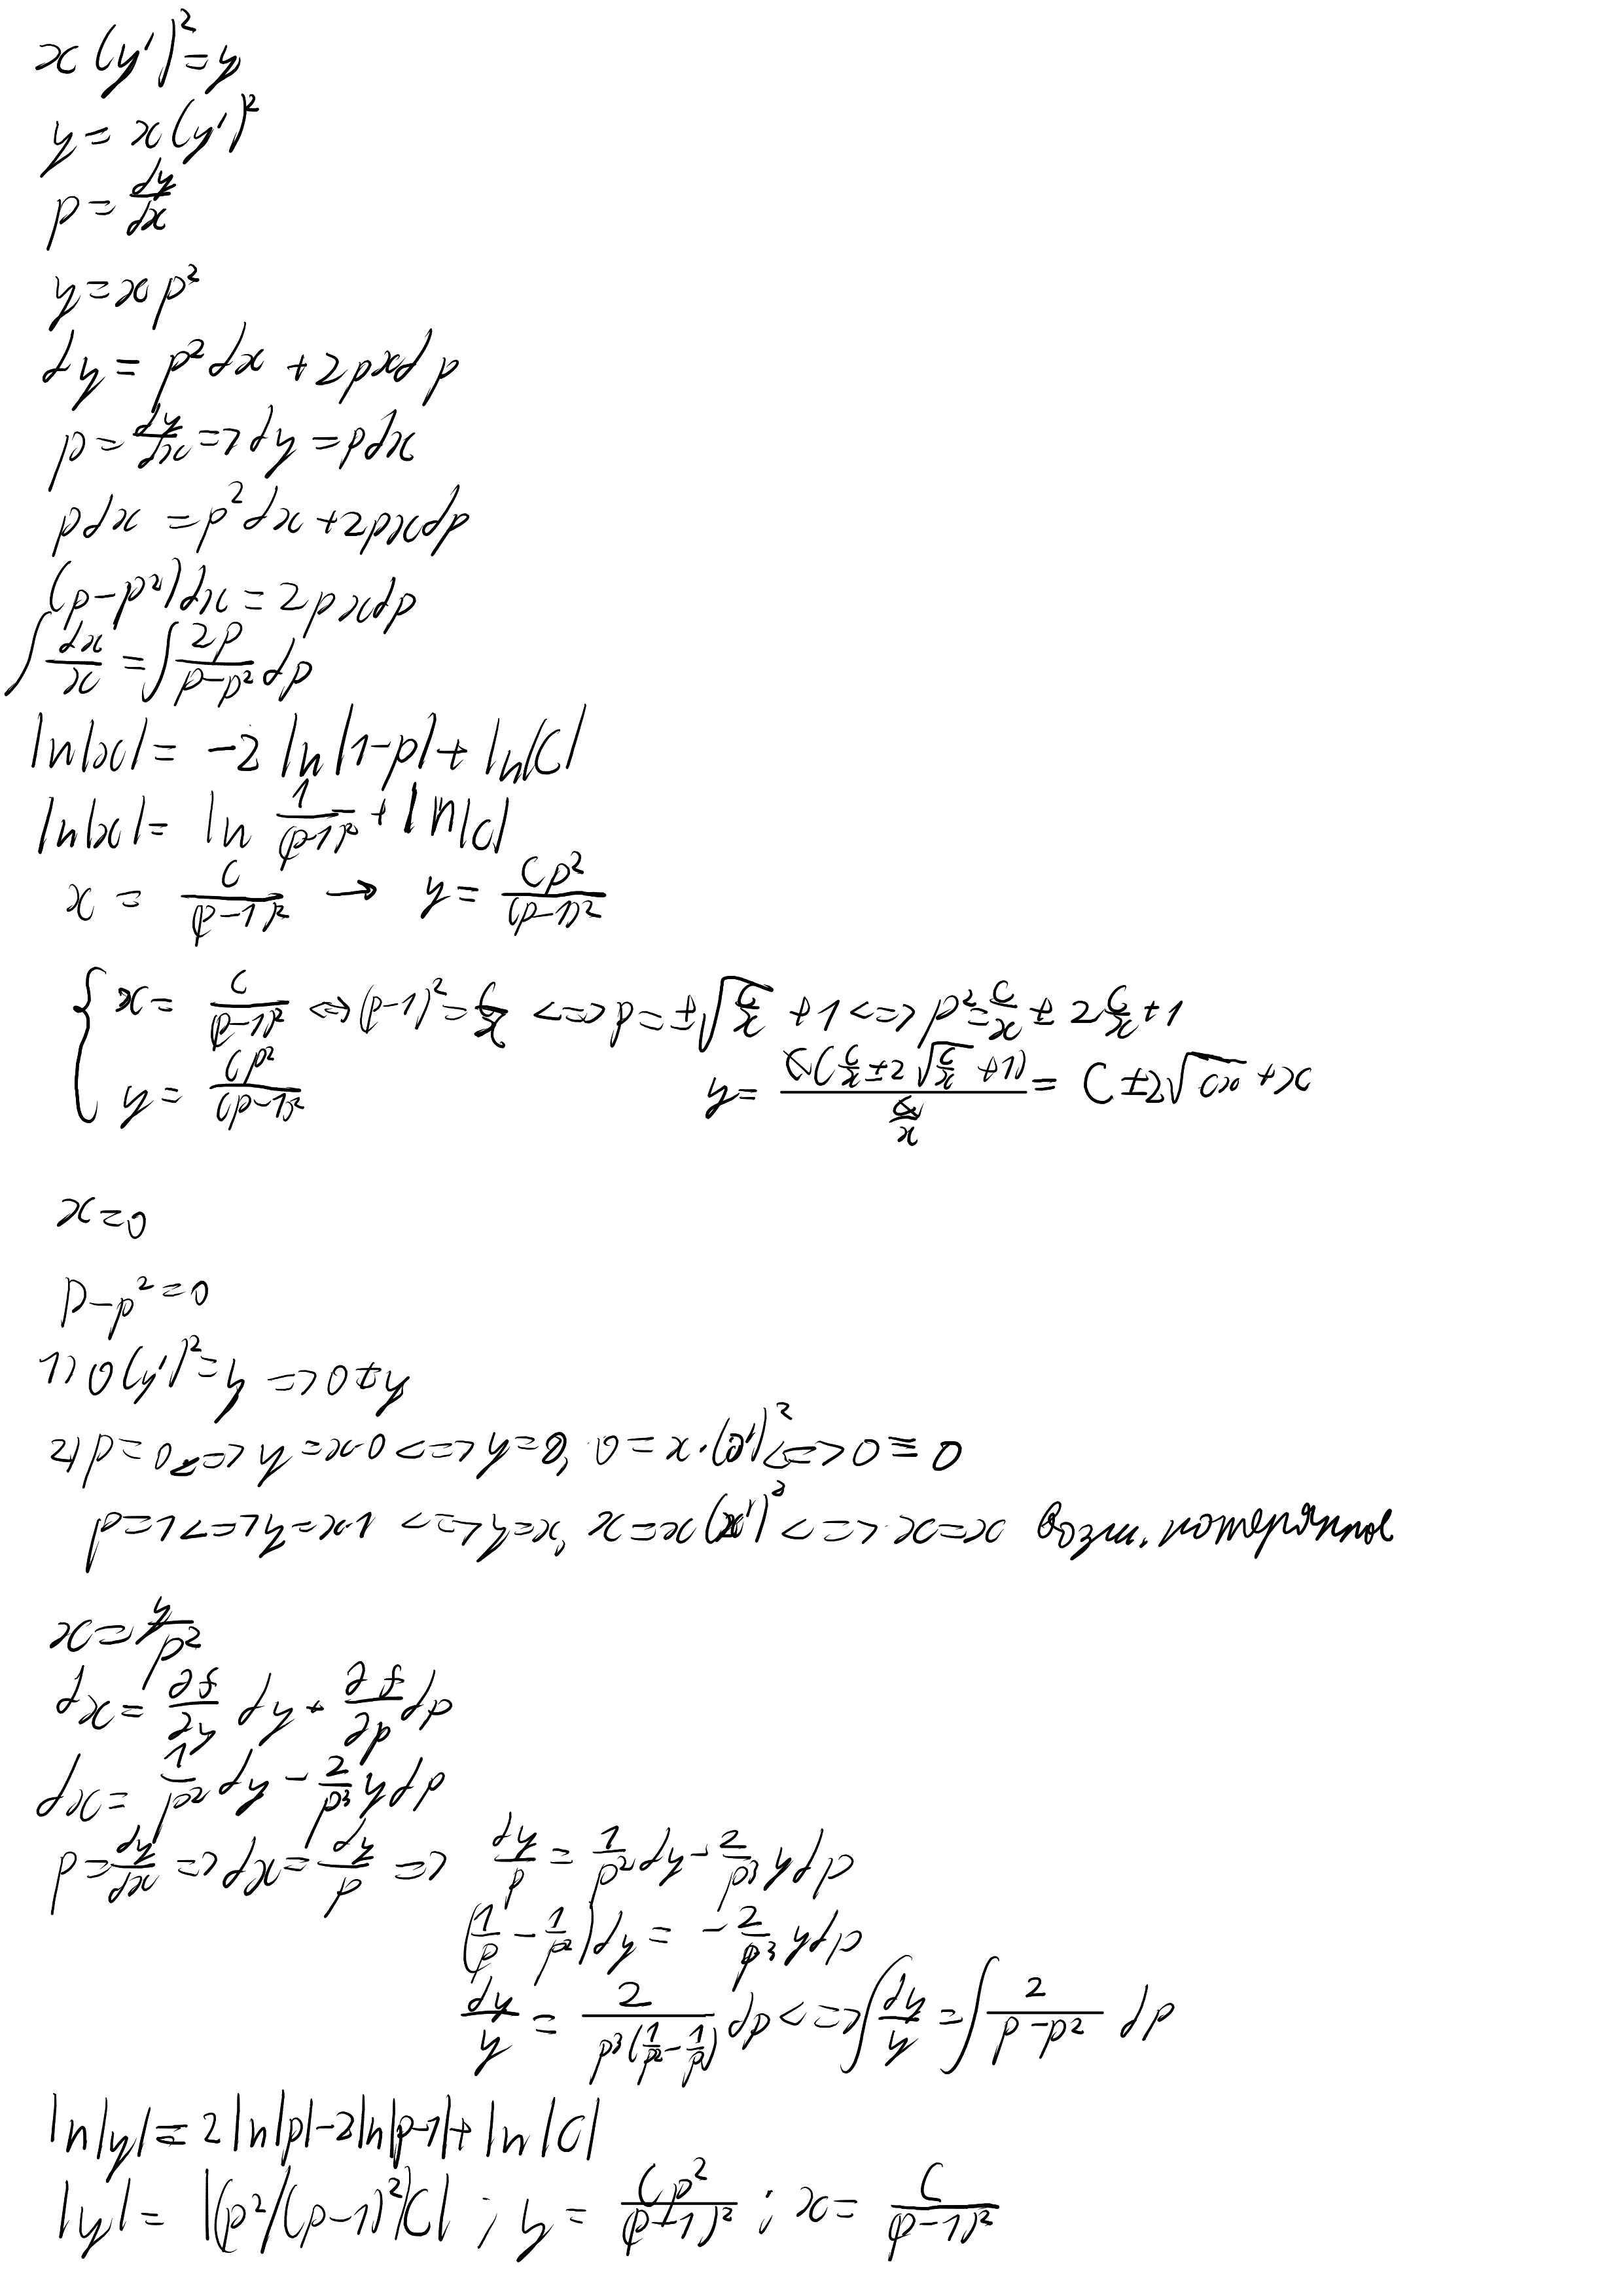 x(y')² = y
y = x(y')²
p = dy/dx
y = xp²
dy = p²dx + 2pxdp
p = dy/dx => dy = pdx
pdx = p²dx + 2pxdp
(p-p²)dx = 2pxdp
∫ dx/x = ∫ 2p/(p-p²) dp
ln|x| = -2 ln|1-p| + ln|C|
ln|x| = ln 1/(p-1)² + ln|C|
x = C/(p-1)² → y = Cp²/(p-1)²
{ x = C/(p-1)² <=> (p-1)² = C/x <=> p = ±√(C/x) + 1 <=> p² = C/x ± 2 C/x + 1
y = Cp²/(p-1)² y = C(C/x ± 2√(C/x) + 1)/(C/x) = C ± 2√(Cx) + x
x = 0
p - p² = 0
1) 0(y')² = y => 0 ≠ y
2) p = 0 <=> y = x·0 <=> y = 0, 0 = x·(0')² <=> 0 ≡ 0
p = 1 <=> y = x·1 <=> y = x, x = x(x')² <=> x = x возм. потерянное
x = y/p²
dx = ∂f/∂y dy + ∂f/∂p dp
dx = 1/p² dy - 2/p³ ydp
p = dy/dx => dx = dy/p => dy/p = 1/p² dy - 2/p³ ydp
(1/p - 1/p²)dy = -2/p³ ydp
dy/y = 2/(p³(1/p² - 1/p)) dp <=> ∫ dy/y = ∫ 2/(p-p²) dp
ln|y| = 2 ln|p| - 2 ln|p-1| + ln|C|
|y| = |(p²/(p-1)²)C| ; y = Cp²/(p-1)² ; x = C/(p-1)²